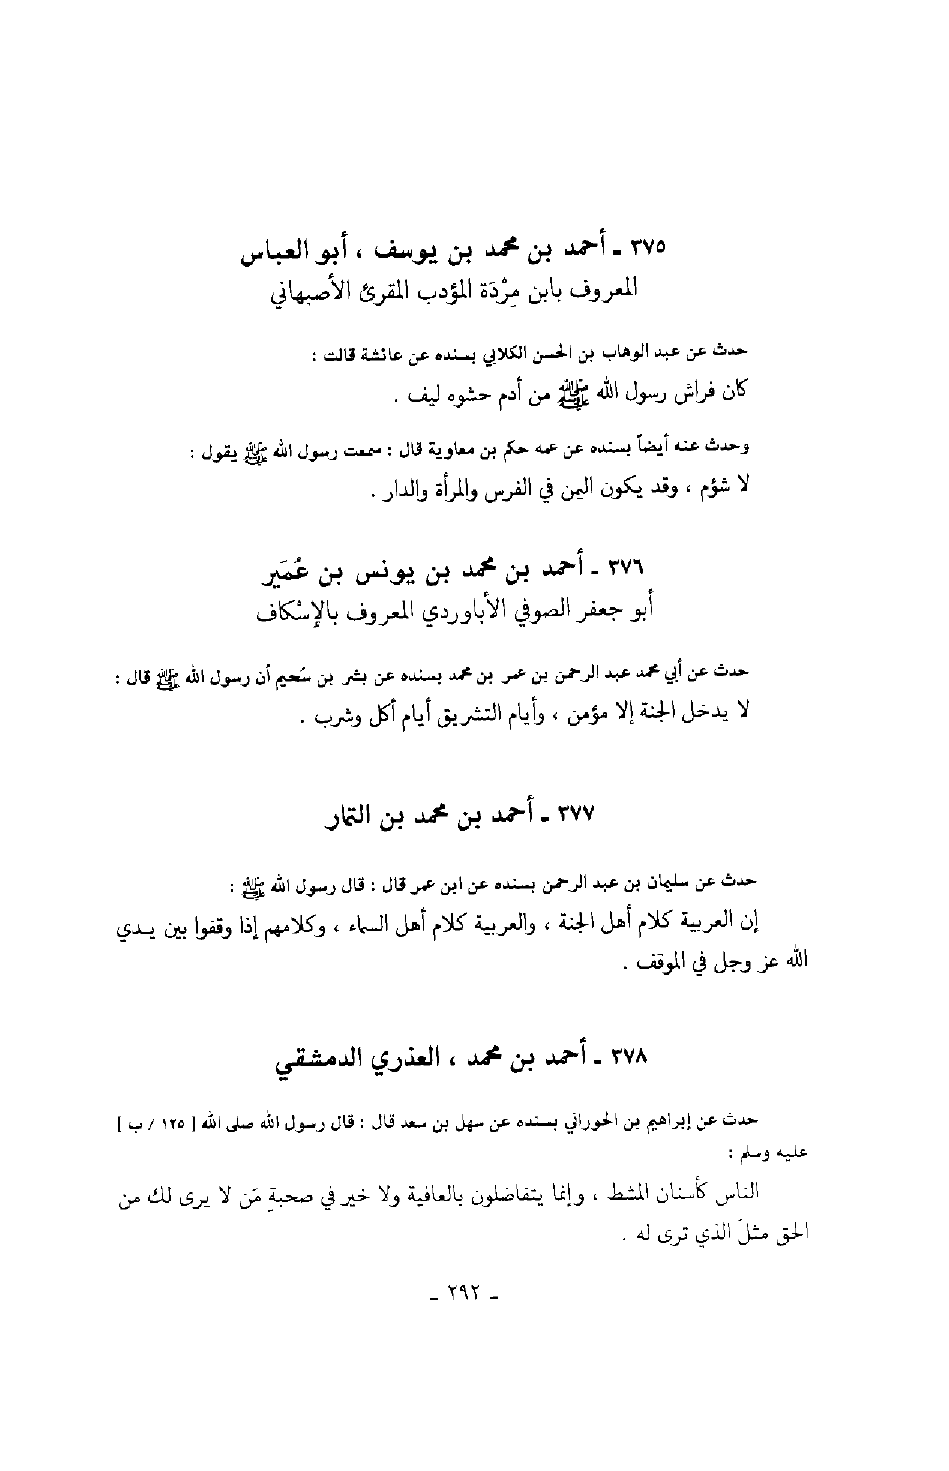 ٣٧٥ ـ أحمد بن محمد بن يوسف ، أبو العباس
المعروف بابن مِرْدَة المؤدب المقرئ الأصبهاني
حدث عن عبد الوهاب بن الحسن الكلابي بسنده عن عائشة قالت :
كان فراش رسول الله ﷺ من أدم حشوه ليف .
وحدث عنه أيضاً بسنده عن عمه حكم بن معاوية قال : سمعت رسول الله ﷺ يقول :
لا شؤم ، وقد يكون اليمن في الفرس والمرأة والدار .
٣٧٦ ـ أحمد بن محمد بن يونس بن عُمَير
أبو جعفر الصوفي الأباوردي المعروف بالإسْكاف
حدث عن أبي محمد عبد الرحمن بن عمر بن محمد بسنده عن بشر بن سُحيم أن رسول الله ﷺ قال :
لا يدخل الجنة إلا مؤمن ، وأيام التشريق أيام أكل وشرب .
٣٧٧ ـ أحمد بن محمد بن التمار
حدث عن سليمان بن عبد الرحمن بسنده عن ابن عمر قال : قال رسول الله ﷺ :
إن العربية كلام أهل الجنة ، والعربية كلام أهل السماء ، وكلامهم إذا وقفوا بين يدي
الله عز وجل في الموقف .
٣٧٨ ـ أحمد بن محمد ، العذري الدمشقي
حدث عن إبراهيم بن الحوراني بسنده عن سهل بن سعد قال : قال رسول الله صلى الله [ ١٢٥ / ب ]
عليه وسلم :
الناس كأسنان المشط ، وإنما يتفاضلون بالعافية ولا خير في صحبةِ مَن لا يرى لك من
الحق مثلَ الذي ترى له .
ـ ٢٩٢ ـ